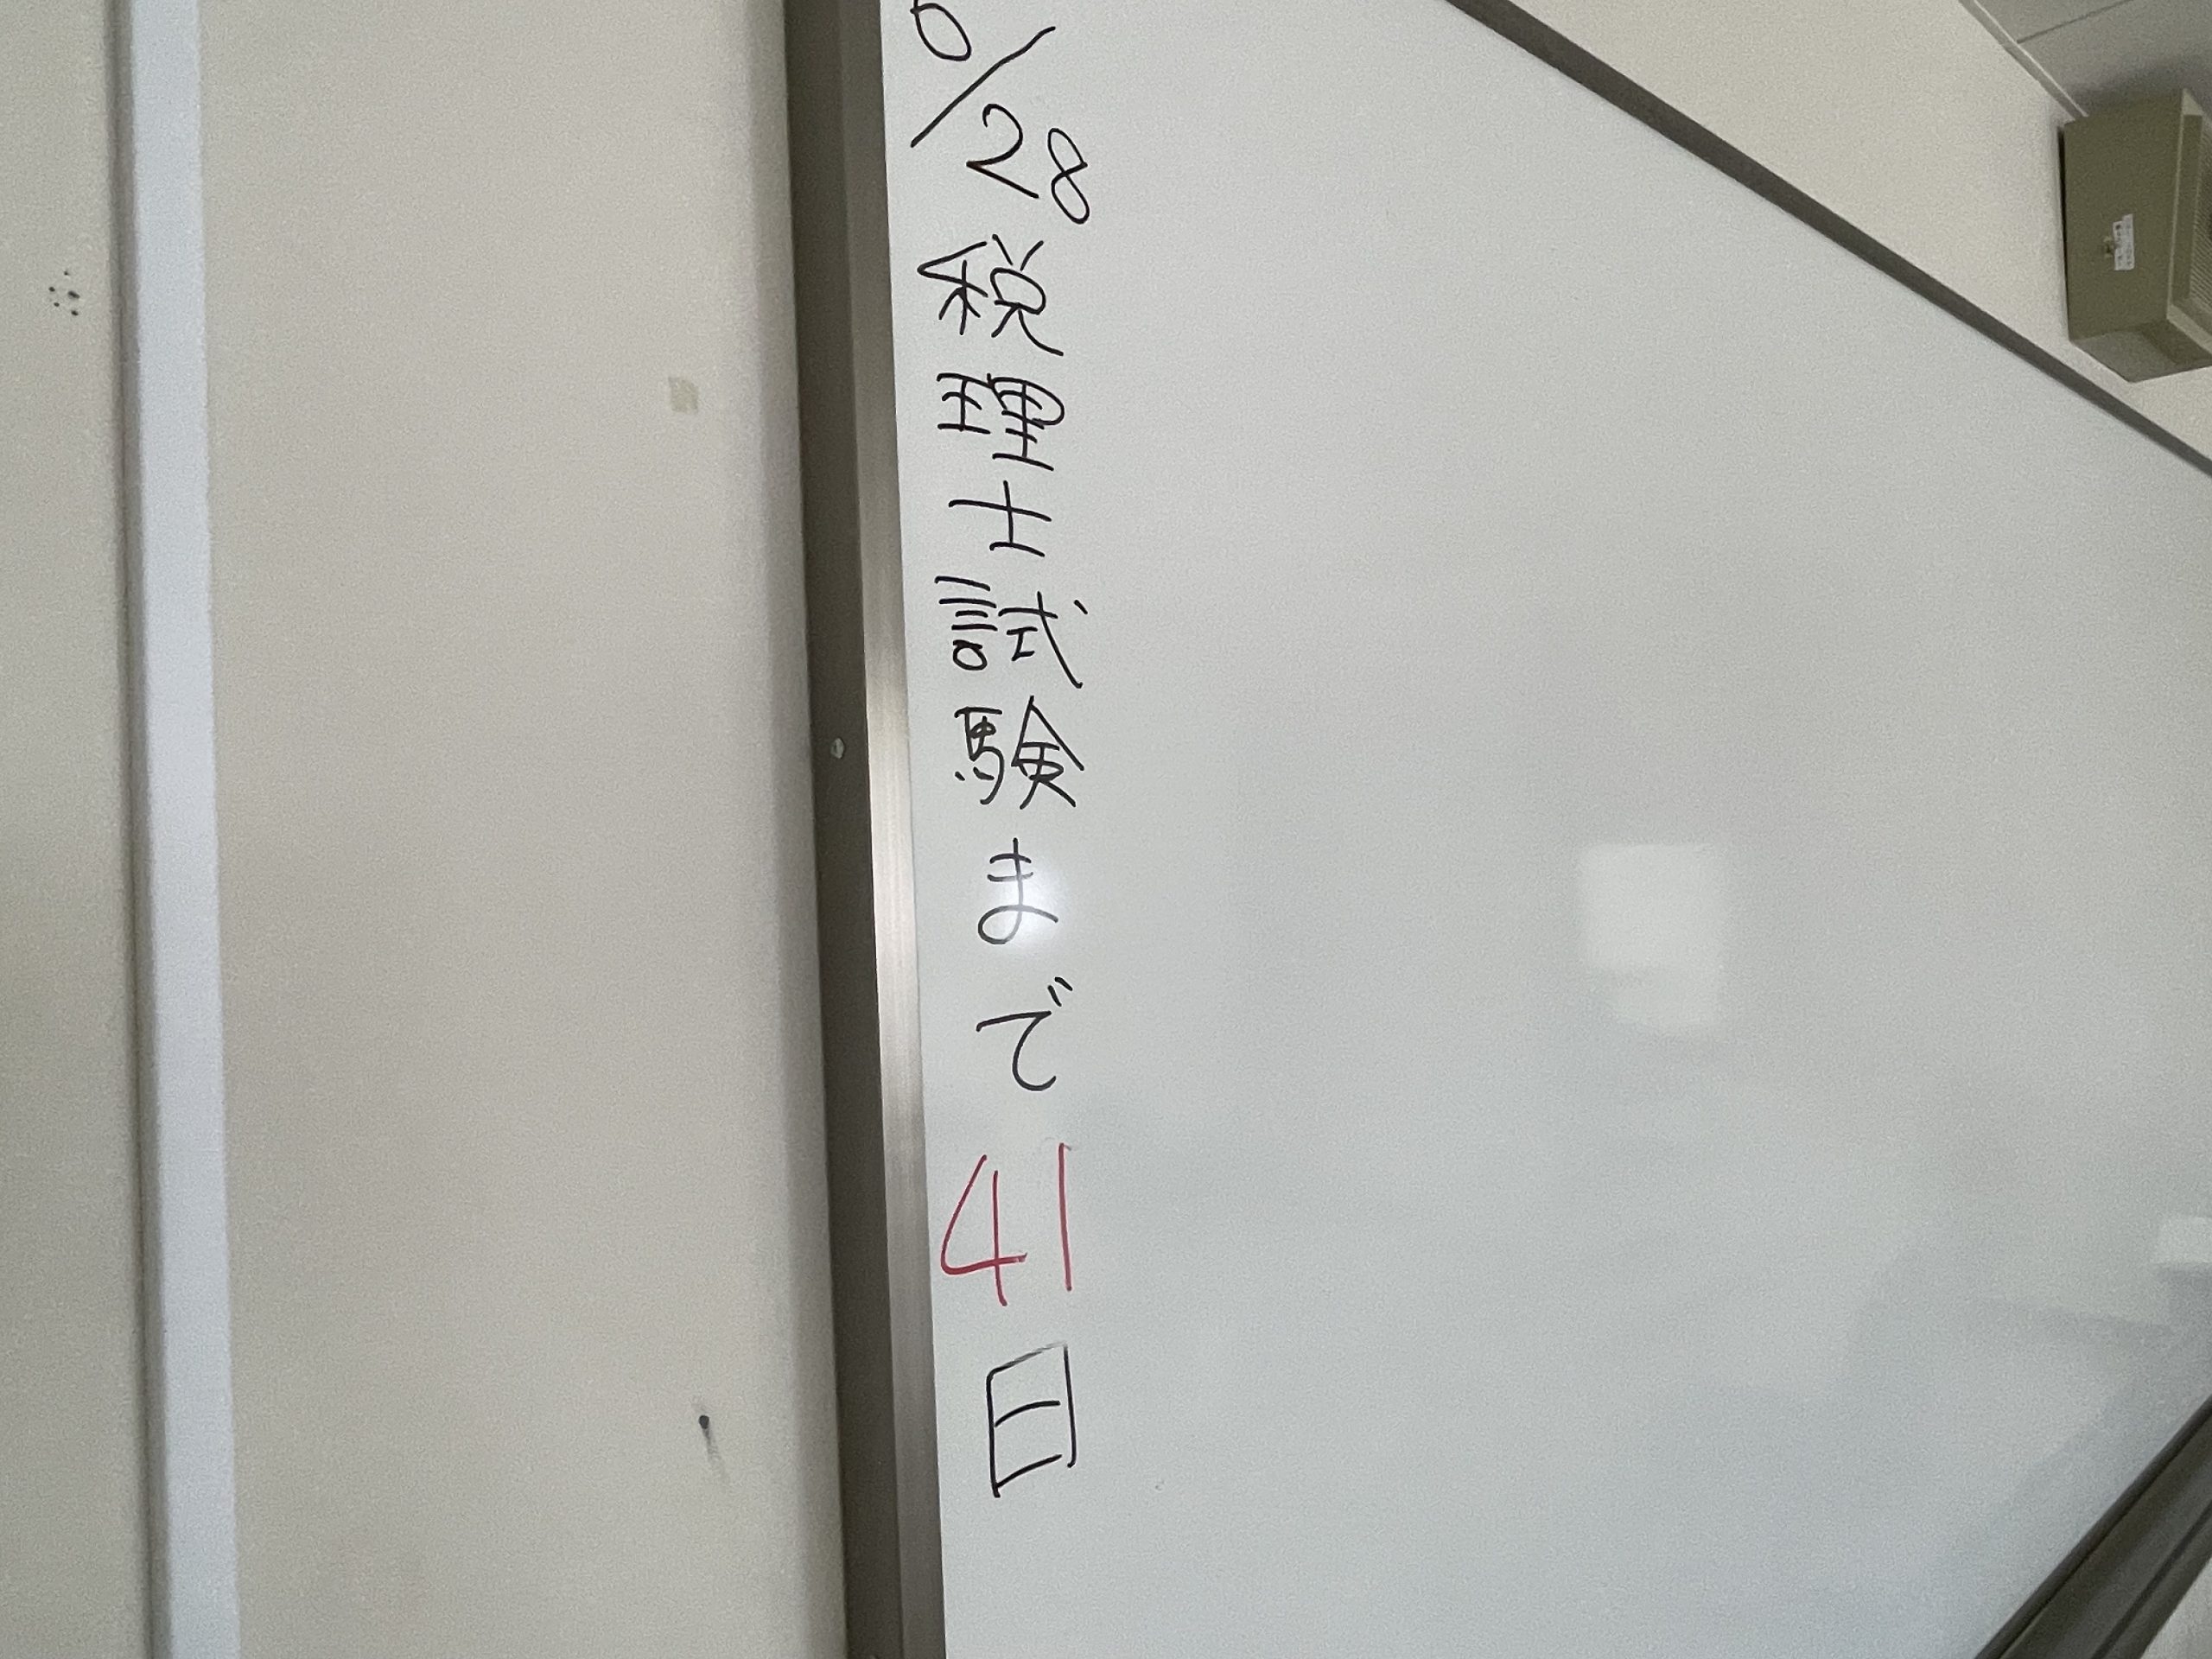 6/28税理士試験まで41日